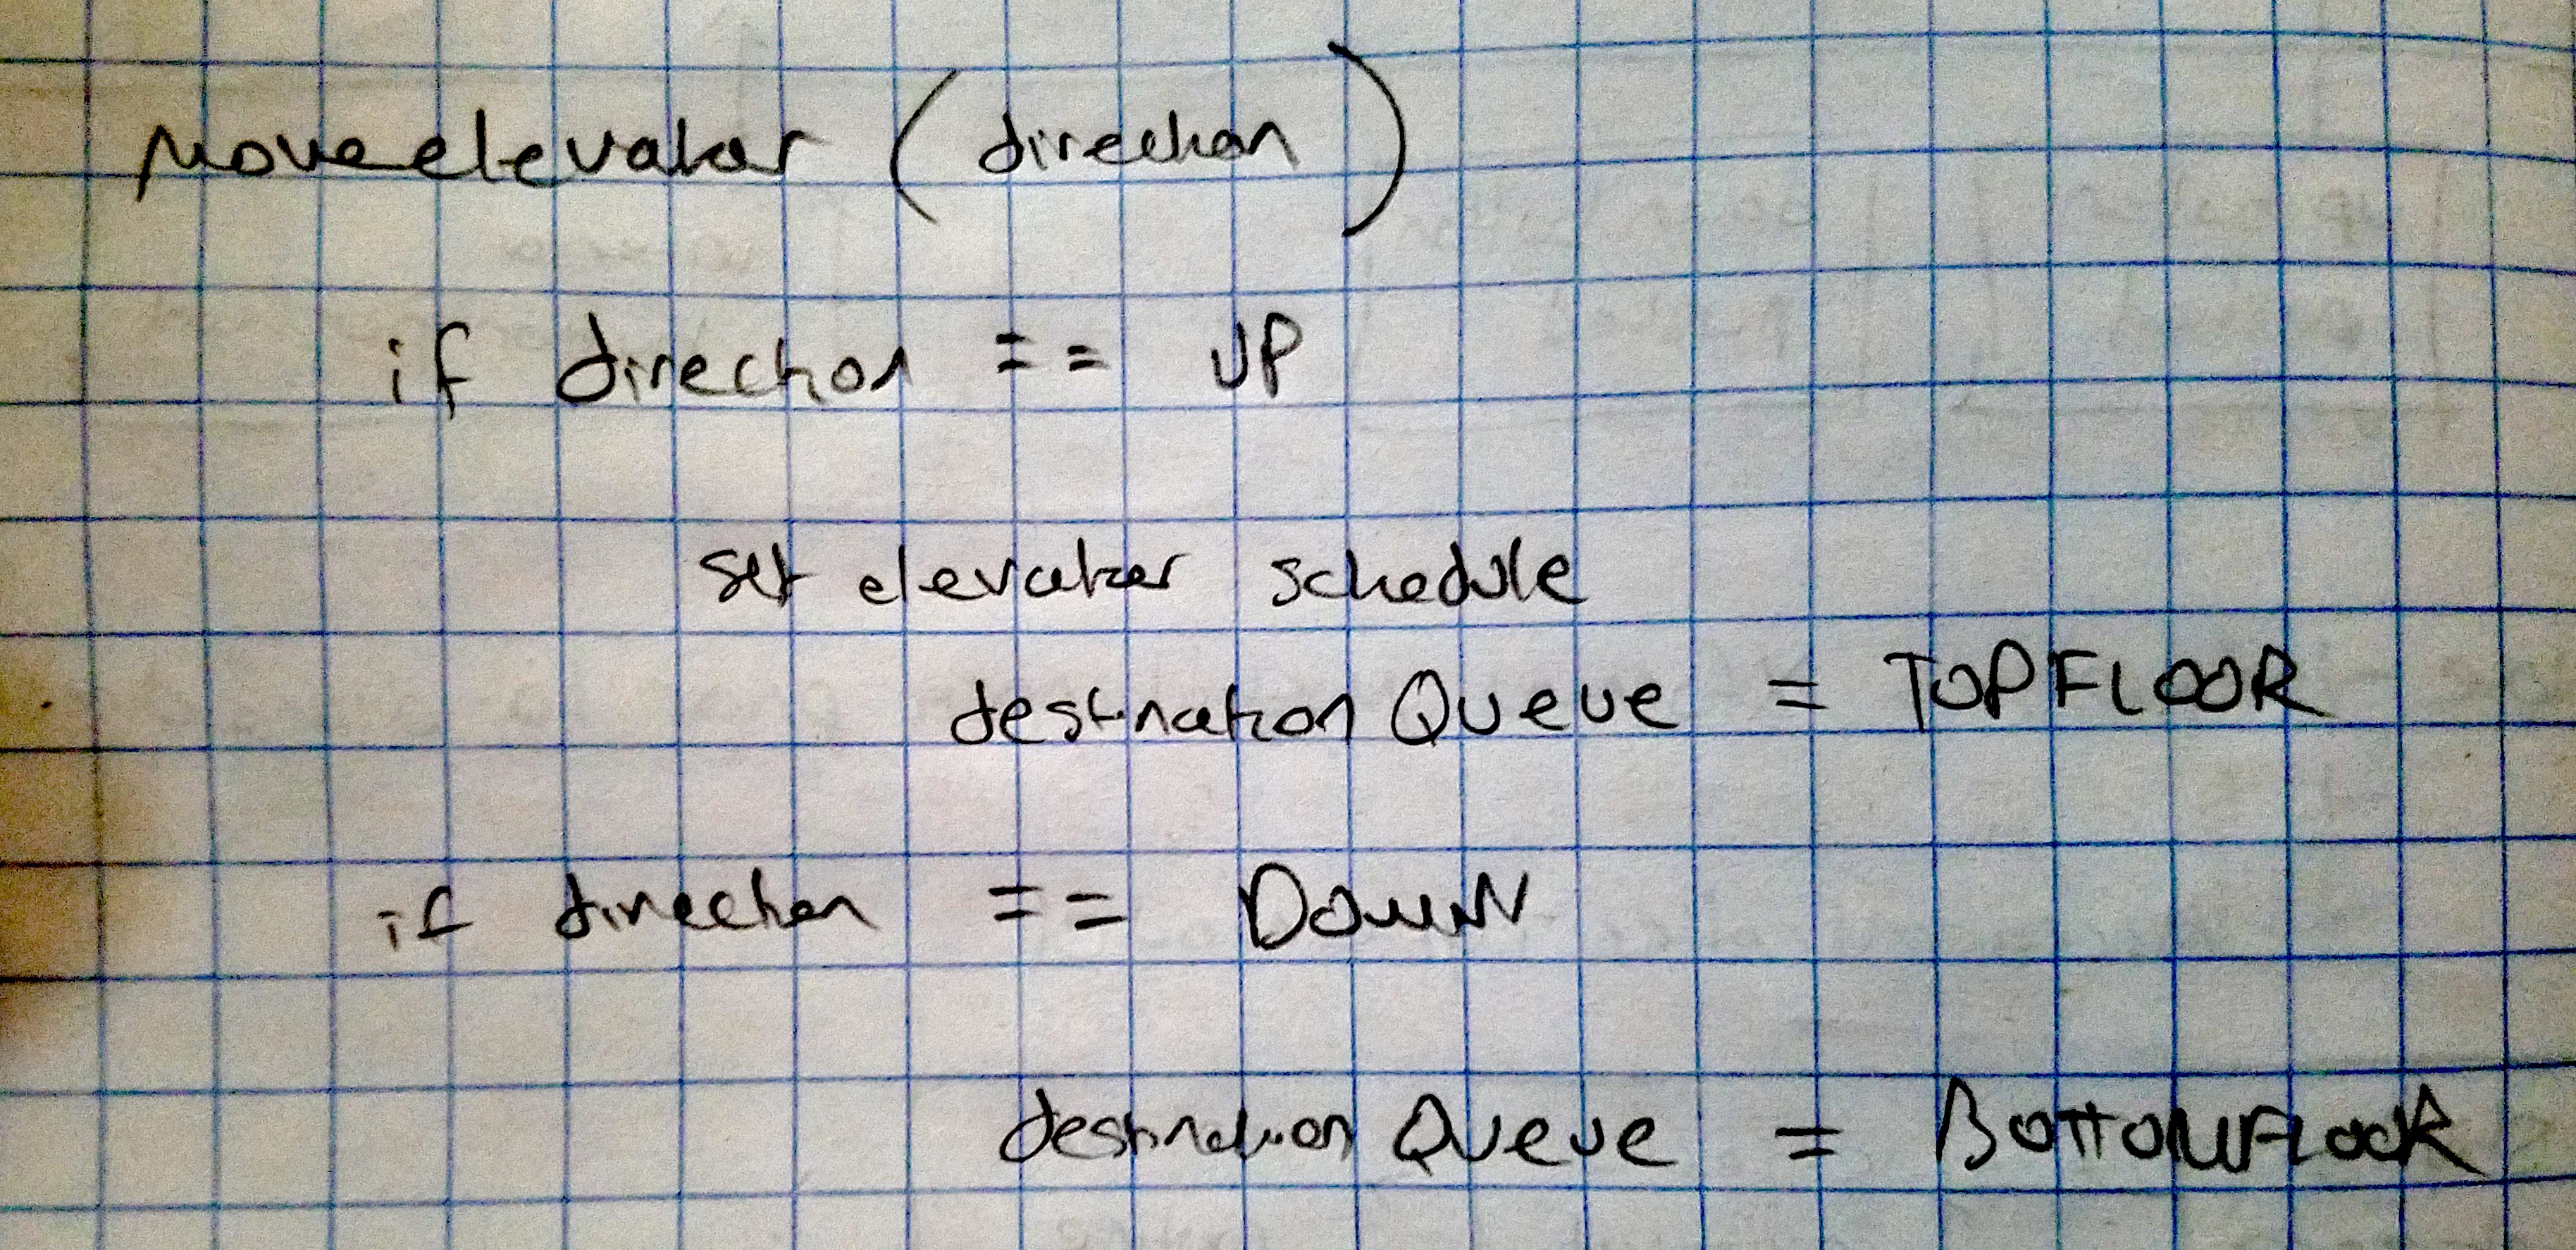 Moveelevator (direction)
if direction == UP
set elevator schedule
destination Queue = TOPFLOOR
if direction == DOWN
destination Queue = BOTTOMFLOOR